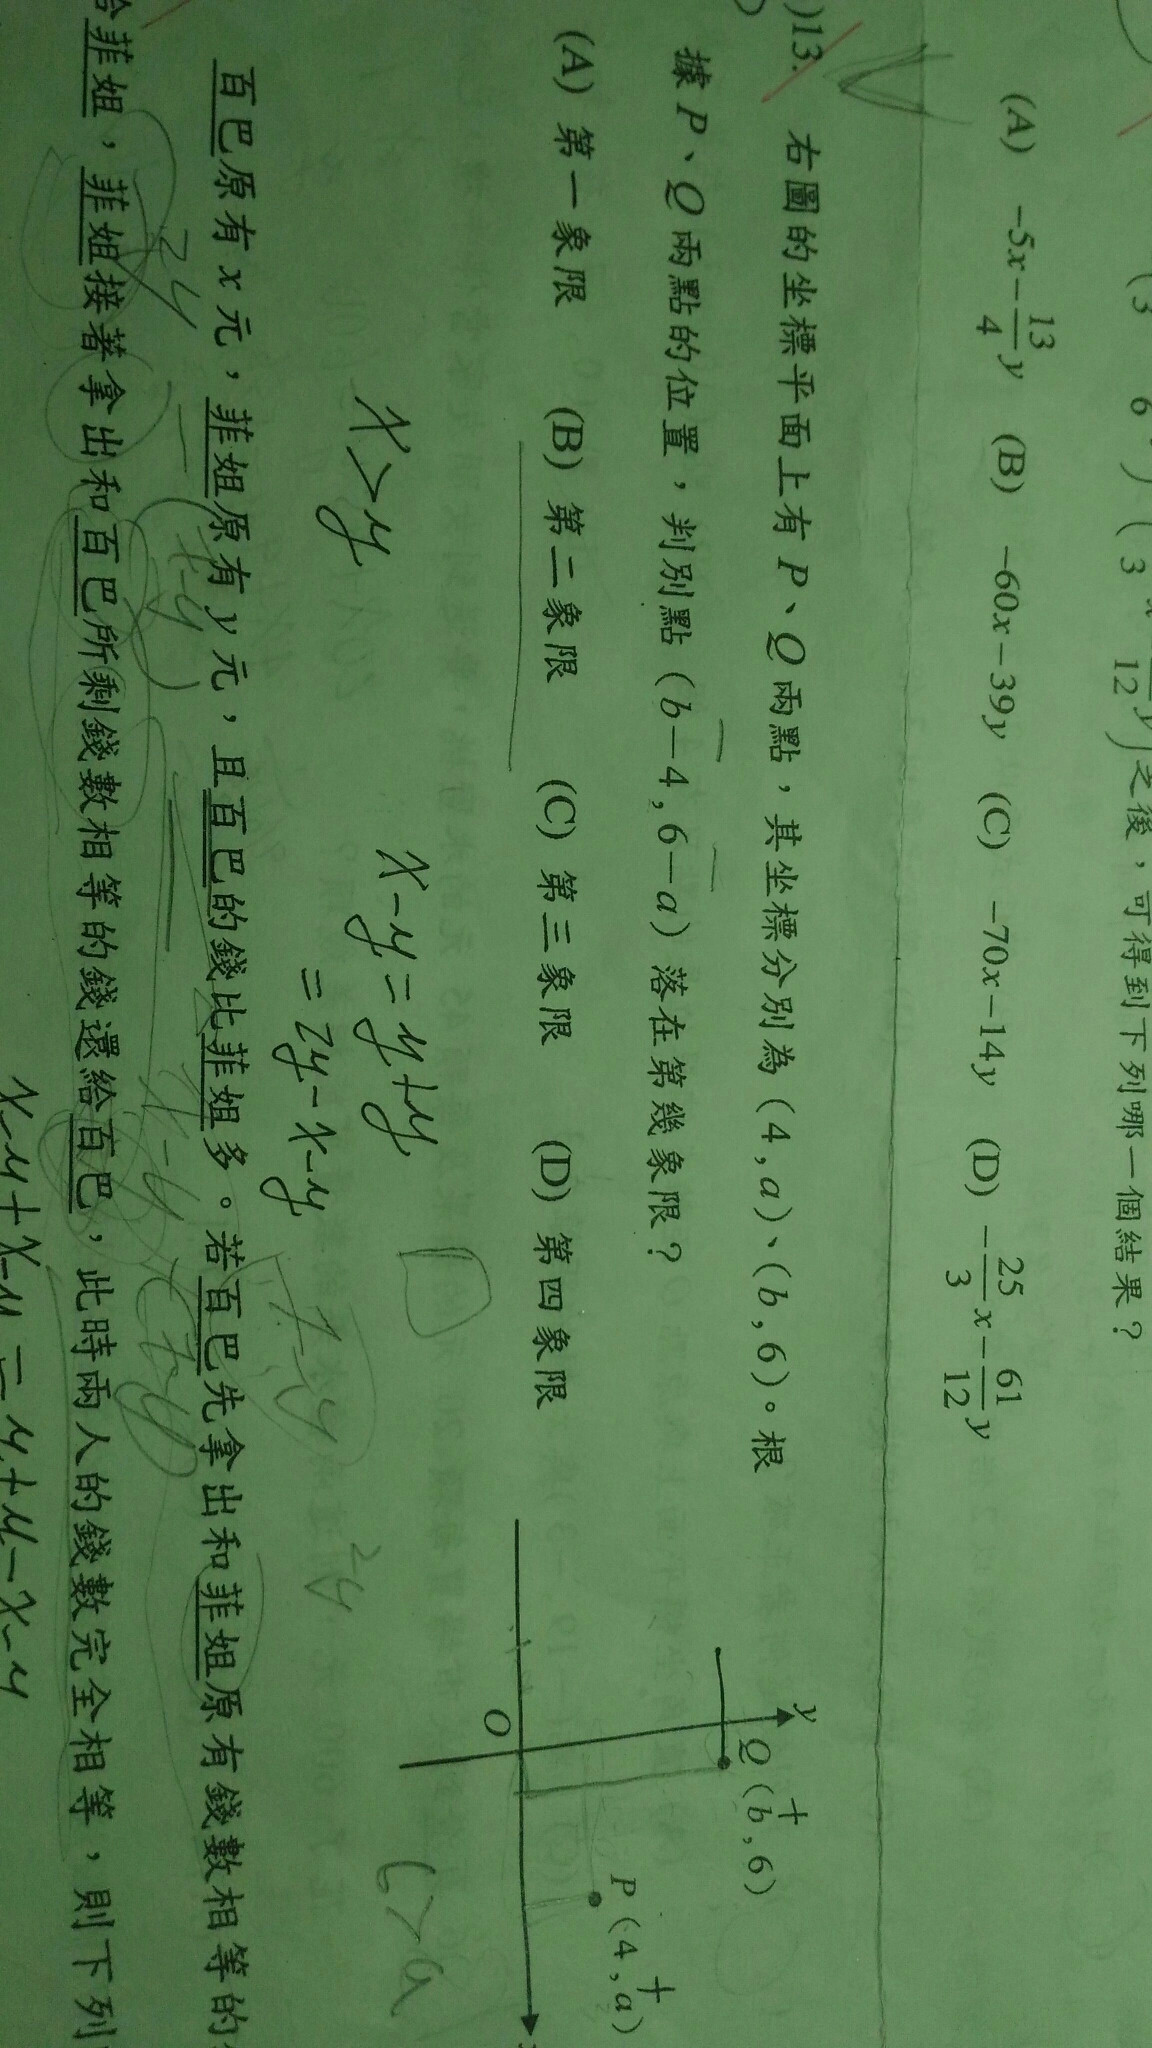 之後，可得到下列哪一個結果？
(A) -5x-\frac{13}{4}y (B) -60x-39y (C) -70x-14y (D) -\frac{25}{3}x-\frac{61}{12}y
)13. 右圖的坐標平面上有P、Q兩點，其坐標分別為(4,a)、(b,6)。根
據P、Q兩點的位置，判別點(b-4,6-a)落在第幾象限？
(A) 第一象限 (B) 第二象限 (C) 第三象限 (D) 第四象限
y
+
Q(b,6)
+
P(4,a)
O
6>a
x>y
x-y=y+y
=2y-x-y
x-y
2y
百巴原有x元，菲姐原有y元，且百巴的錢比菲姐多。若百巴先拿出和菲姐原有錢數相等的
給菲姐，菲姐接著拿出和百巴所剩錢數相等的錢還給百巴，此時兩人的錢數完全相等，則下列
2y
x-y
x-y
x-y+x-y=y+y-x-y